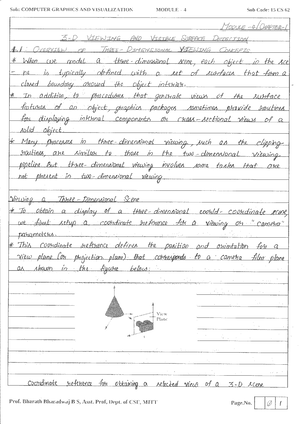 Sub: COMPUTER GRAPHICS AND VISUALIZATION MODULE - 4 Sub Code: 15 CS 62
Module-4/Chapter-1
3-D VIEWING AND VISIBLE SURFACE DETECTION
4.1 OVERVIEW OF THREE-DIMENSIONAL VIEWING CONCEPT
* When we model a three-dimensional scene, each object in the sce
- ne is typically defined with a set of surfaces that form a
closed boundary around the object interior.
* In addition, to procedures that generate views of the surface
features of an object, graphics packages sometimes provide routines
for displaying internal components or cross-sectional views of a
solid object.
* Many processes in three dimensional viewing, such as the clipping-
routines, are similar to those in the two-dimensional viewing
pipeline But three-dimensional viewing involves some tasks that are
not present in two-dimensional viewing.
Viewing a Three-Dimensional Scene
* To obtain a display of a three-dimensional world-coordinate scene,
we first setup a coordinate reference for a viewing or "camera"
parameters.
* This coordinate reference defines the position and orientation for a
view plane (or projection plane) that corresponds to a camera film plane
as shown in the figure below.
View
Plane
Coordinate reference for obtaining a selected view of a 3-D scene
Prof. Bharath Bharadwaj B S, Asst. Prof, Dept. of CSE, MITT Page.No. 0 1